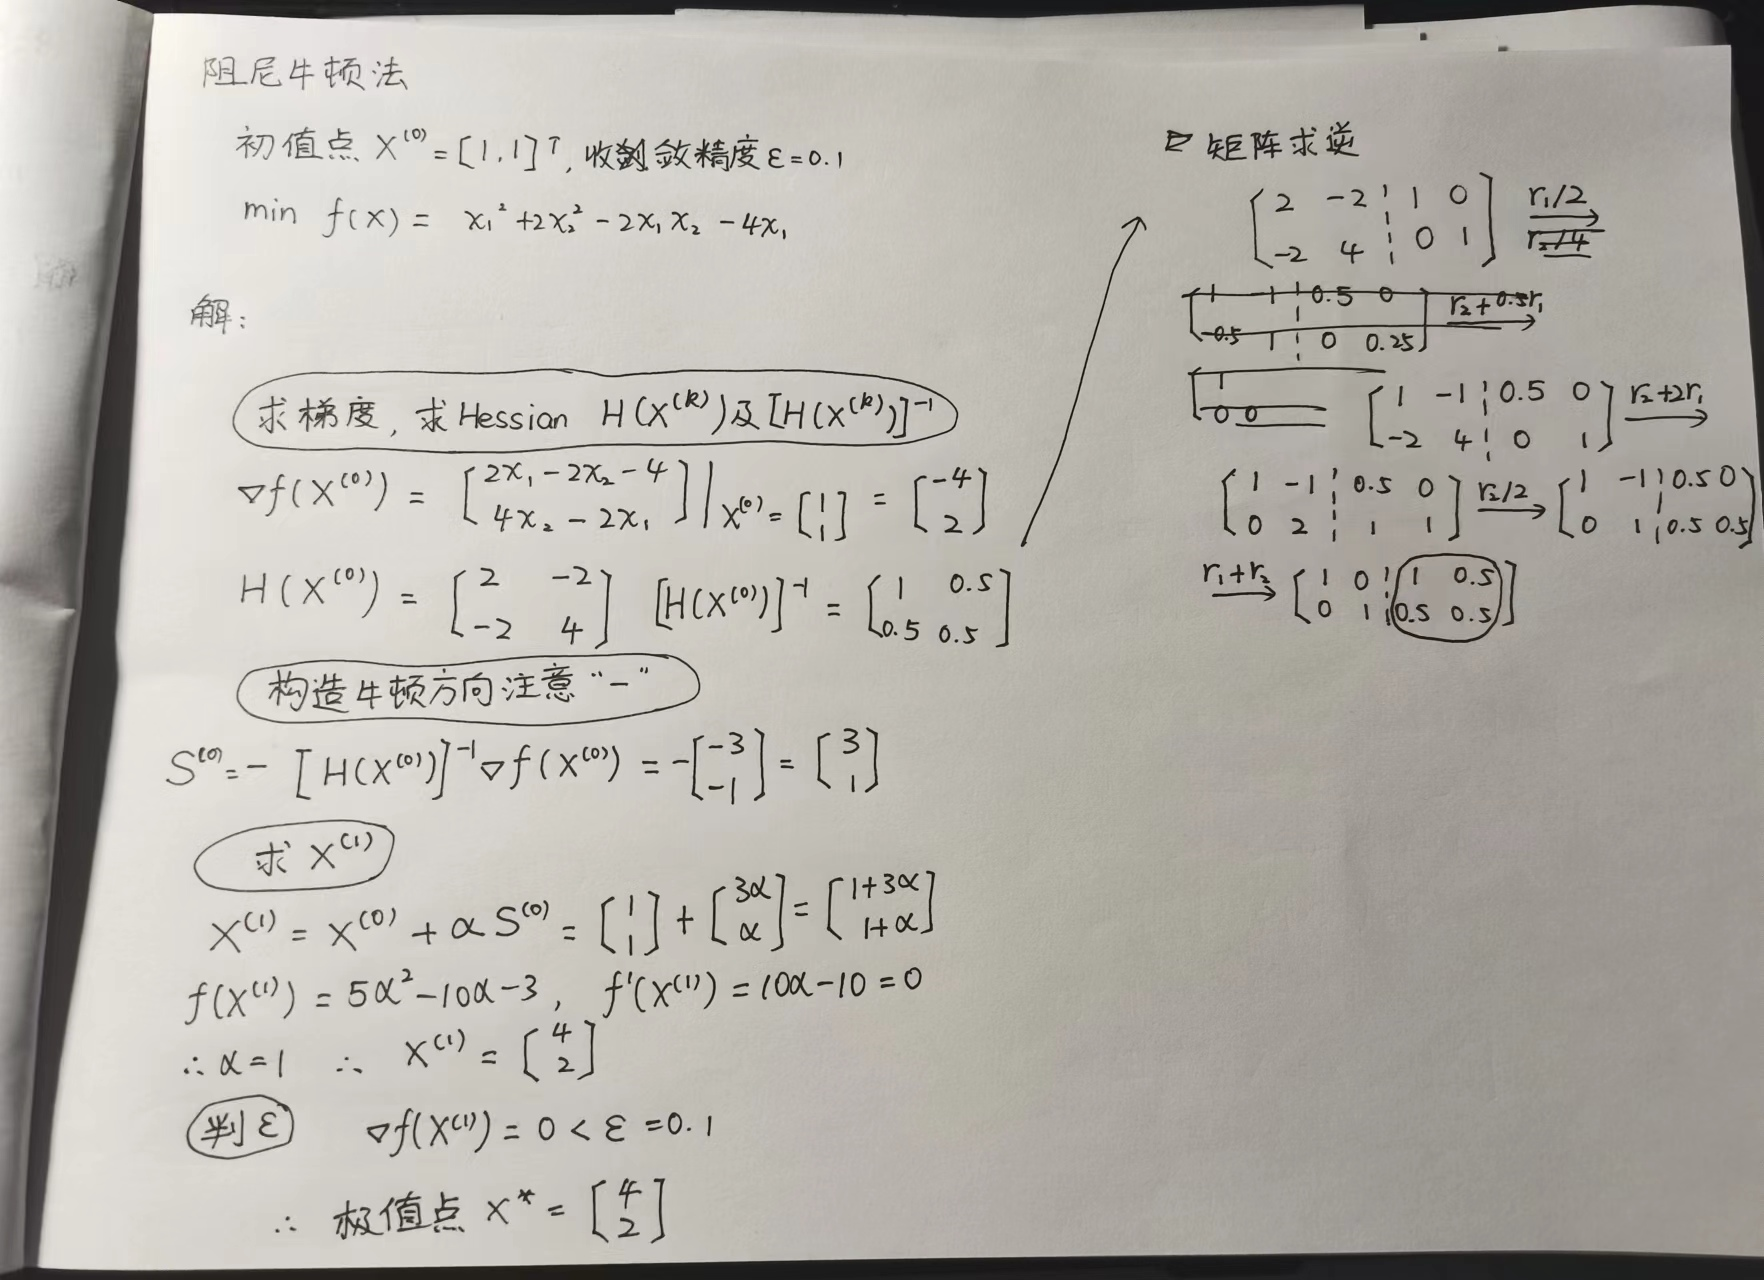 阻尼牛顿法
初值点 X⁽⁰⁾=[1,1]ᵀ, 收敛精度 ε=0.1
min f(X) = x₁²+2x₂²-2x₁x₂-4x₁
解:
求梯度, 求Hessian H(X⁽ᵏ⁾)及[H(X⁽ᵏ⁾)]⁻¹
∇f(X⁽⁰⁾) = [2x₁-2x₂-4; 4x₂-2x₁]|X⁽⁰⁾=[1; 1] = [-4; 2]
H(X⁽⁰⁾) = [2 -2; -2 4] [H(X⁽⁰⁾)]⁻¹ = [1 0.5; 0.5 0.5]
构造牛顿方向注意“-”
S⁽⁰⁾=-[H(X⁽⁰⁾)]⁻¹∇f(X⁽⁰⁾) = -[-3; -1] = [3; 1]
求 X⁽¹⁾
X⁽¹⁾ = X⁽⁰⁾ + αS⁽⁰⁾ = [1; 1] + [3α; α] = [1+3α; 1+α]
f(X⁽¹⁾) = 5α²-10α-3, f'(X⁽¹⁾) = 10α-10 = 0
∴ α=1 ∴ X⁽¹⁾ = [4; 2]
判ε ∇f(X⁽¹⁾) = 0 < ε = 0.1
∴ 极值点 X* = [4; 2]
▷ 矩阵求逆
[2 -2 ¦ 1 0; -2 4 ¦ 0 1] r₁/2 → r₂/4
[1 -1 ¦ 0.5 0; -0.5 1 ¦ 0 0.25] r₂+0.5r₁ →
[1; 0 0
[1 -1 ¦ 0.5 0; -2 4 ¦ 0 1] r₂+2r₁ →
[1 -1 ¦ 0.5 0; 0 2 ¦ 1 1] r₂/2 → [1 -1 ¦ 0.5 0; 0 1 ¦ 0.5 0.5]
r₁+r₂ → [1 0 ¦ 1 0.5; 0 1 ¦ 0.5 0.5]